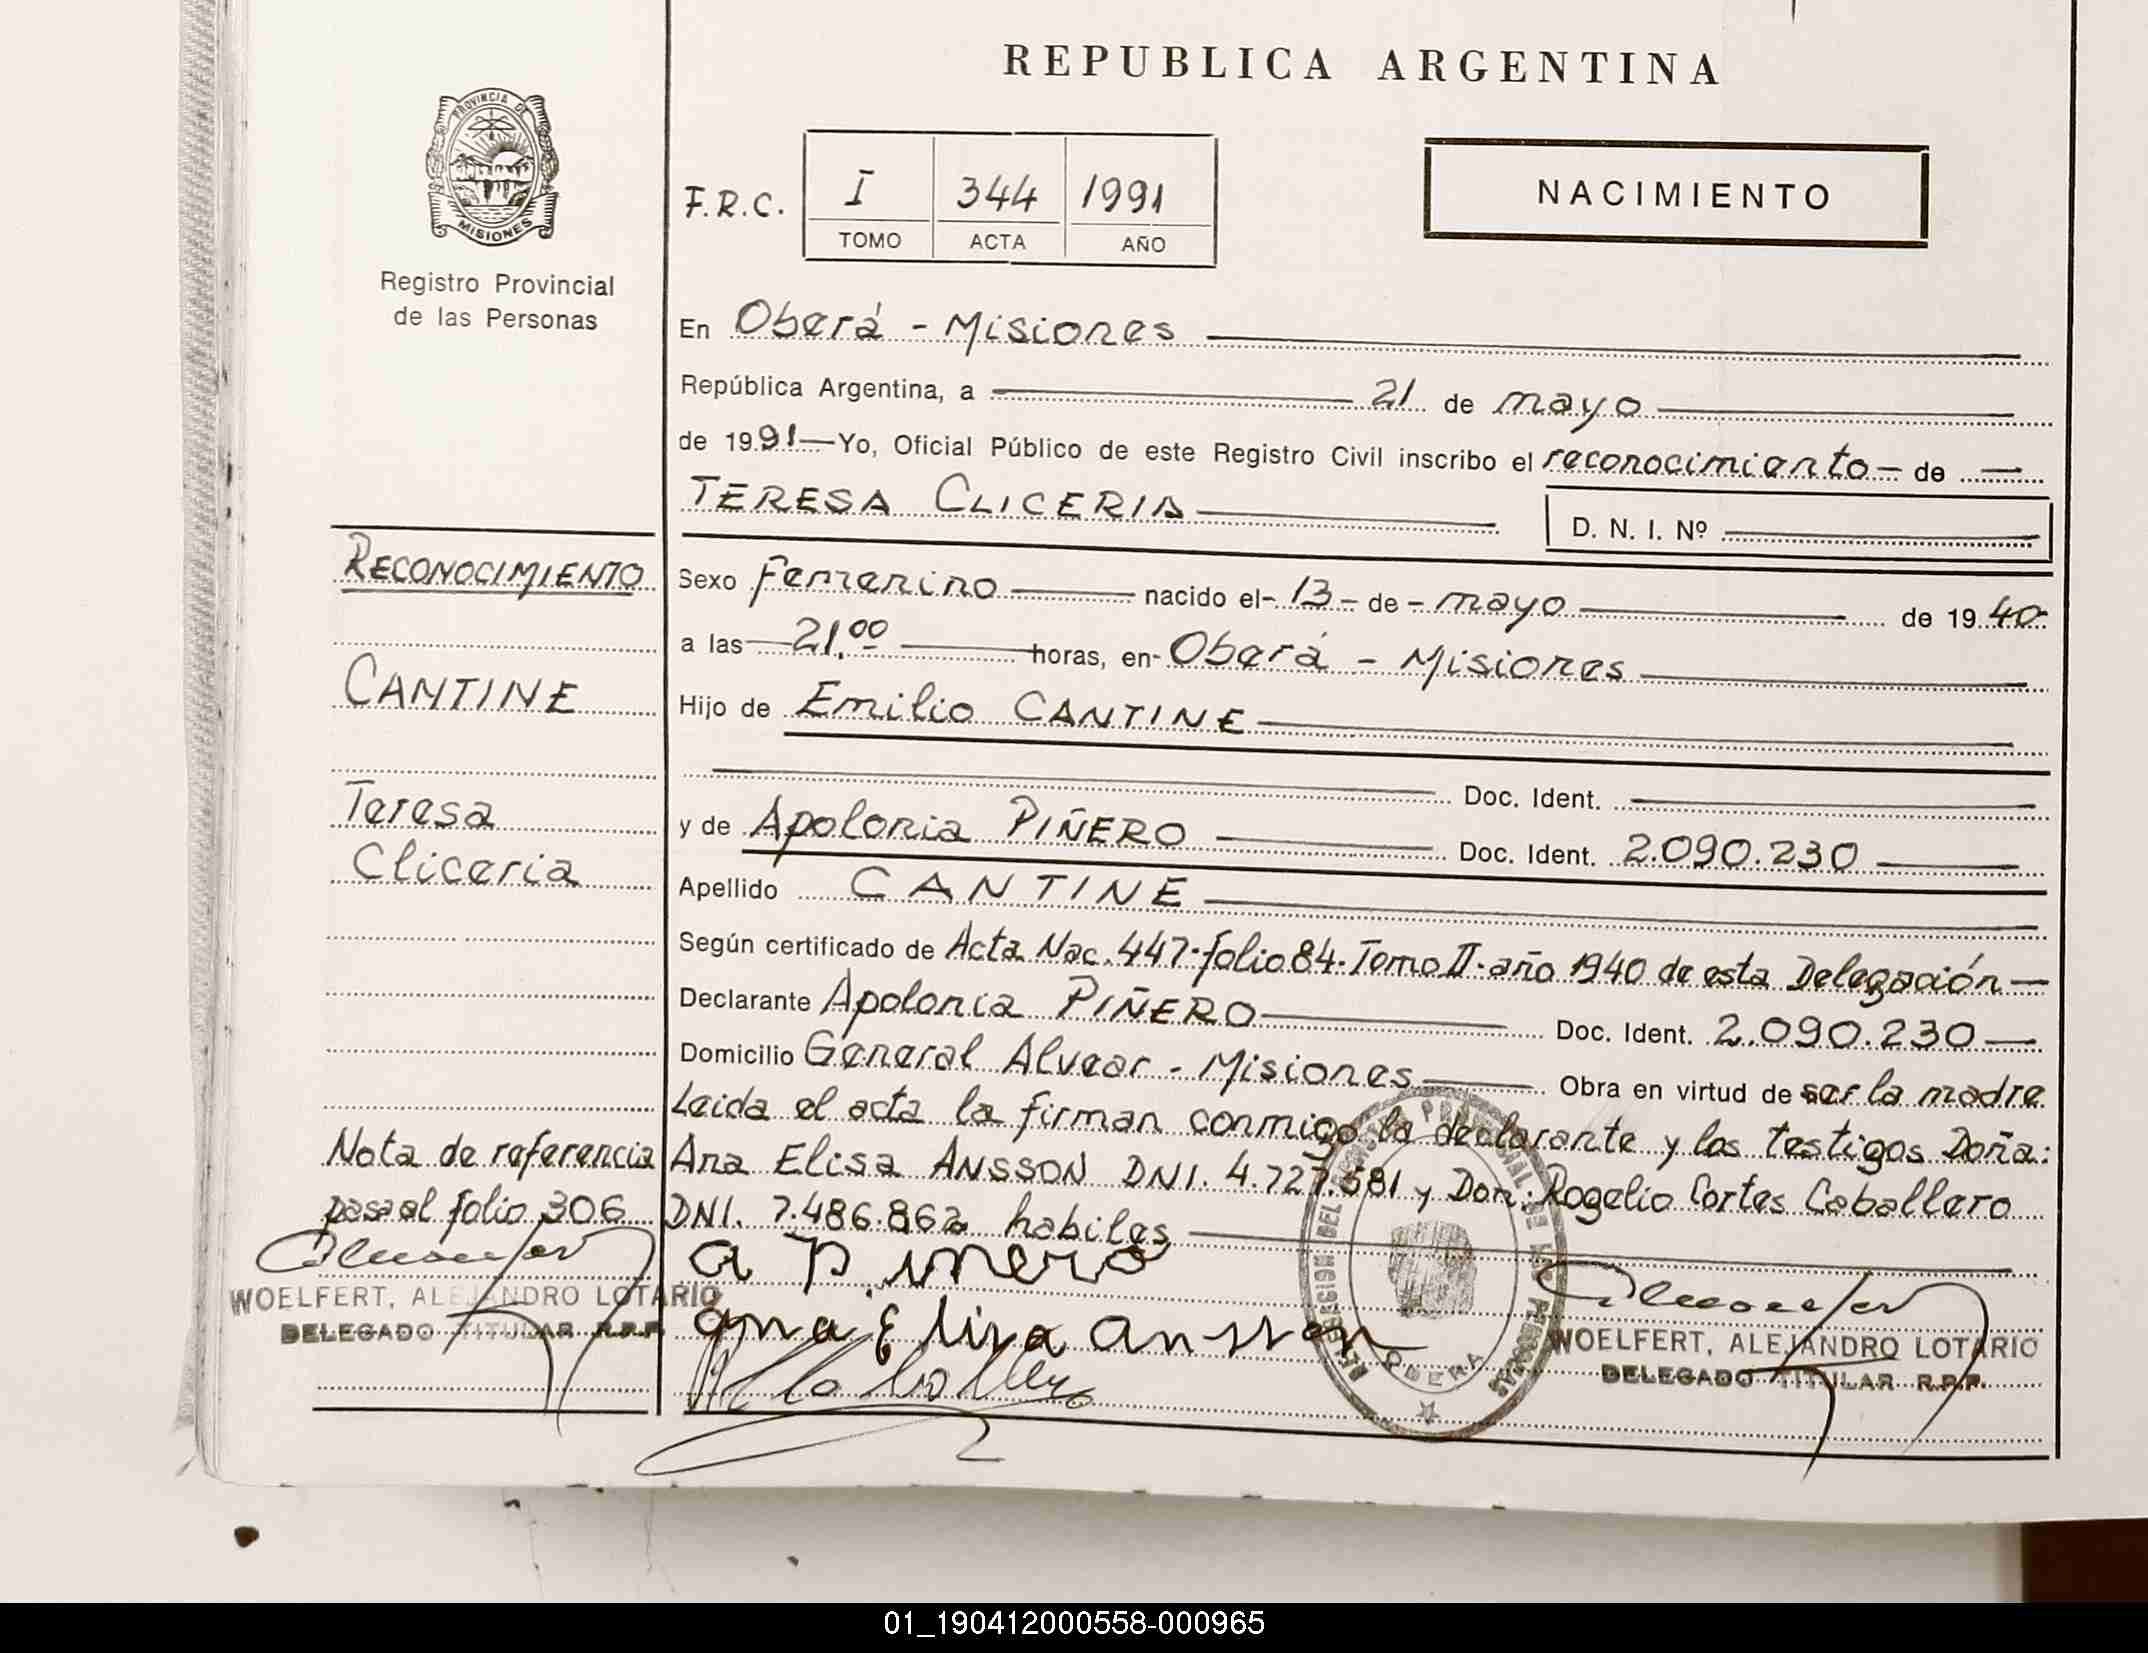 REPUBLICA ARGENTINA
PROVINCIA DE
MISIONES
Registro Provincial
de las Personas
F.R.C.
I 344 1991
TOMO ACTA AÑO
NACIMIENTO
En Oberá - Misiones
República Argentina, a 21 de mayo
de 1991 Yo, Oficial Público de este Registro Civil inscribo el reconocimiento de
TERESA CLICERIA D. N. I. Nº
RECONOCIMIENTO
CANTINE
Teresa
Cliceria
Nota de referencia
pasa al folio 306
WOELFERT, ALEJANDRO LOTARIO
DELEGADO TITULAR R.P.P.
Sexo femenino nacido el- 13 - de - mayo de 1940
a las 21.00 horas, en- Oberá - Misiones
Hijo de Emilio CANTINE
Doc. Ident.
y de Apolonia PIÑERO Doc. Ident. 2.090.230
Apellido CANTINE
Según certificado de Acta Nac. 447-folio 84-Tomo II-año 1940 de esta Delegación
Declarante Apolonia PIÑERO Doc. Ident. 2.090.230
Domicilio General Alvear - Misiones Obra en virtud de ser la madre
Leida el acta la firman conmigo la declarante y los testigos Doña:
Ana Elisa ANSSON DNI. 4.727.581 y Don: Rogelio Cortes Caballero
DNI. 7.486.862 habiles
a Pinero
Ana Elisa Ansson
OBERA
WOELFERT, ALEJANDRO LOTARIO
DELEGADO TITULAR R.P.P.
01_190412000558-000965